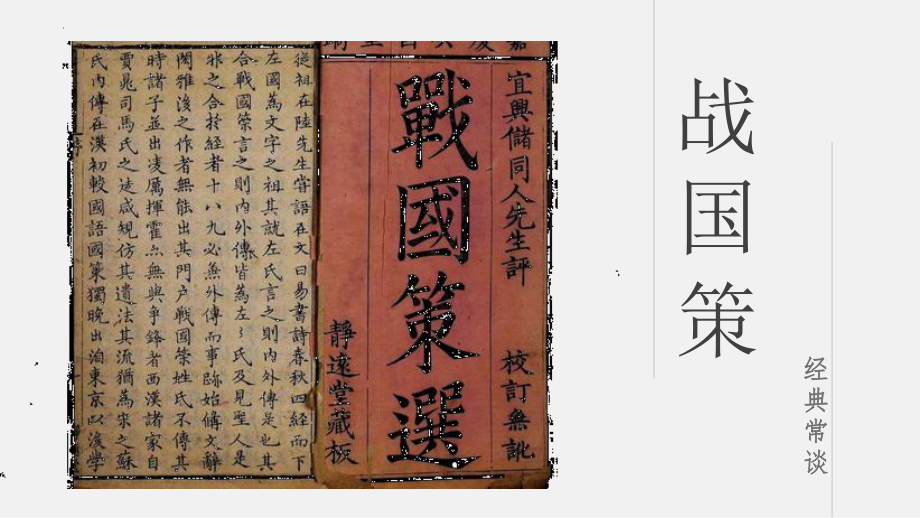 战国策
经典常谈
宜興儲同人先生評
校訂無訛
戰國策選
靜遠堂藏板
從祖在陸先生嘗語在文曰易書詩春秋四經而下
左國為文字之祖其就左氏言之則內外傳是也其
合戰國策言之則內外傳皆為左氏及見聖人是
非之合於經者十八九必無外傳而事跡始備文辭
閎雅後之作者無能出其門戶戰國策姓氏不傳其
時諸子並出凌厲揮霍亦無與爭鋒者西漢諸家自
賈晁司馬氏之徒咸規仿其遺法其流猶為宋之蘇
氏內傳在漢初較國語國策獨晚出洎東京以後學